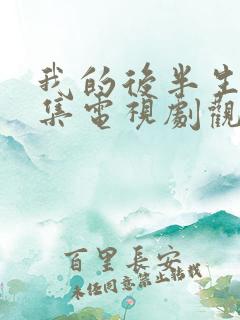 我的後半生
集電視劇觀
百里長安
未經同意禁止轉載